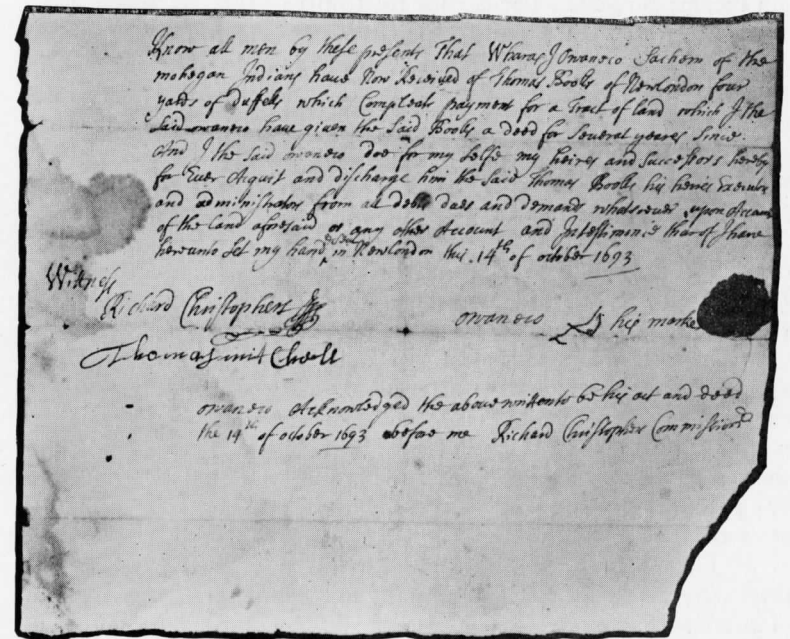 Know all men by these presents That Wharas I Owaneco Sachem of the
mohegan Indians have Now Received of Thomas Bolls of Newlondon four
yards of duffells which Compleats payment for a Tract of land which I the
Said owaneco have given the Said Bolls a deed for Several yeares Since.
And I the said owaneco doe for my selfe my heires and successors hereby
for Ever Aquit and discharge him the said Thomas Bolls his heires
and administrators from all debts dues and demands whatsoever upon
of the land aforesaid or any other Account and In testimonie thar of I have
hereunto Set my hand in Newlondon this 14th of october 1693
Witness
Richard Christophers
owaneco his marke
Thomas
owaneco Acknowledged the above written to be his act and deed
the 14th of october 1693 before me Richard Christophers